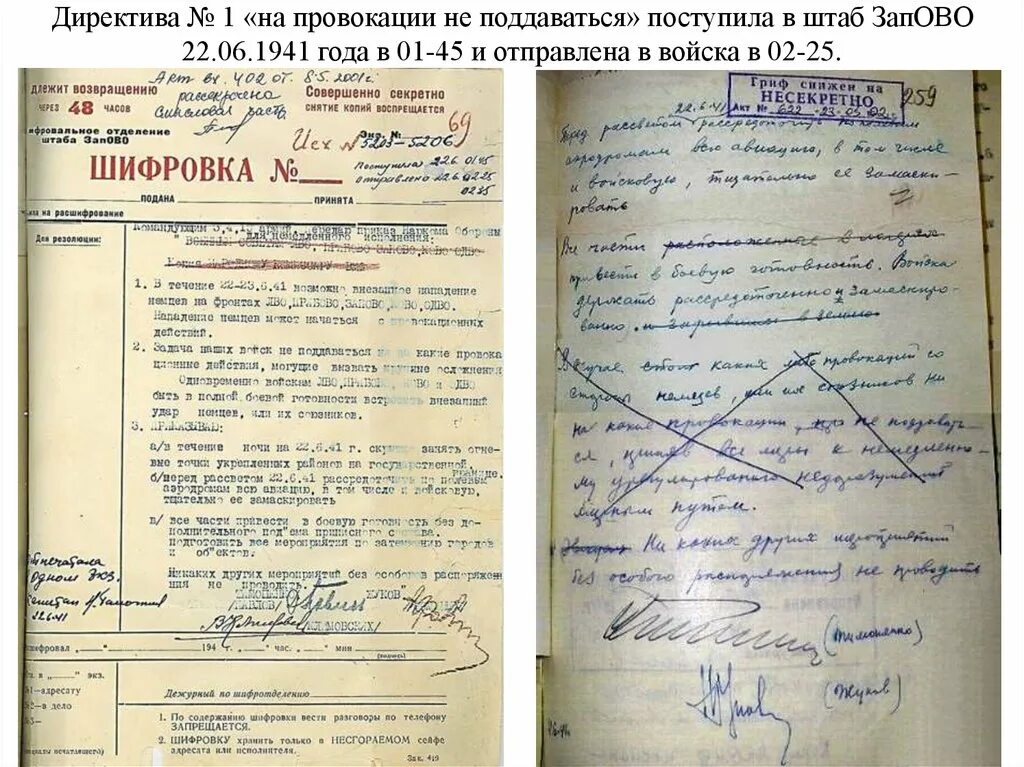 Директива № 1 «на провокации не поддаваться» поступила в штаб ЗапОВО
22.06.1941 года в 01-45 и отправлена в войска в 02-25.
Акт вх. 402 от 8.5.2001г
длежит возвращению
рассекречена
Совершенно секретно
ЧЕРЕЗ 48 ЧАСОВ
СНЯТИЕ КОПИЙ ВОСПРЕЩАЕТСЯ
69
ифровальное отделение
штаба ЗапОВО
Экз. №
Исх №5203-5206
ШИФРОВКА №
Поступила 22.6 01.45
отправлена 22.6 02.25
02.35
ПОДАНА
ПРИНЯТА
на расшифрование
Для резолюции:
Командующим 3,4,10 армий передаю приказ Наркома Обороны
" для немедленного исполнения:
1. В течение 22-23.6.41 возможно внезапное нападение
немцев на фронтах ЛВО, ПРИБОВО, ЗАПОВО, КОВО, ОДВО.
Нападение немцев может начаться с провокационных
действий.
2. Задача наших войск не поддаваться ни на какие провока
ционные действия, могущие вызвать крупные осложнения
Одновременно войскам ЛВО, ПРИБОВО, КОВО и ОДВО
быть в полной боевой готовности встретить внезапный
удар немцев, или их союзников.
3. ПРИКАЗЫВАЮ:
а/в течение ночи на 22.6.41 г. скрытно занять огне-
вые точки укрепленных районов на государственной
границе.
б/перед рассветом 22.6.41 г рассредоточить по полевым
аэродромам всю авиацию, в том числе и войсковую,
тщательно ее замаскировать
в/ все части привести в боевую готовность без до-
полнительного под"ема приписного состава.
подготовить все мероприятия по затемнению городов
и об"ектов.
Никаких других мероприятий без особого распоряжения
не проводить.
ТИМОШЕНКО ЖУКОВ
/ПАВЛОВ/
/КЛИМОВСКИХ/
Отпечатала
одном экз.
22.6.41
шифровал 194 г. час. мин
(подпись)
экз.
№1-адресату
2-в дело
3-
Дежурный по шифротделению
1. По содержанию шифровки вести разговоры по телефону
ЗАПРЕЩАЕТСЯ.
2. ШИФРОВКУ хранить только в НЕСГОРАЕМОМ сейфе
адресата или исполнителя.
Зак. 419
Гриф снижен на
НЕСЕКРЕТНО
Акт № 622
259
22.6.41
Перед рассветом рассредоточить по полевым
аэродромам всю авиацию, в том числе
и войсковую, тщательно ее замаски-
ровать
Все части расположенные в лагерях
привести в боевую готовность. Войска
держать рассредоточенно и замаскиро-
ванно.
В случае каких либо провокаций со
стороны немцев, или их союзников ни
на какие провокации не поддавать-
ся, приняв все меры к немедленно-
му урегулированию недоразумений
мирным путем.
Ни каких других мероприятий
без особого распоряжения не проводить
(Тимошенко)
(Жуков)